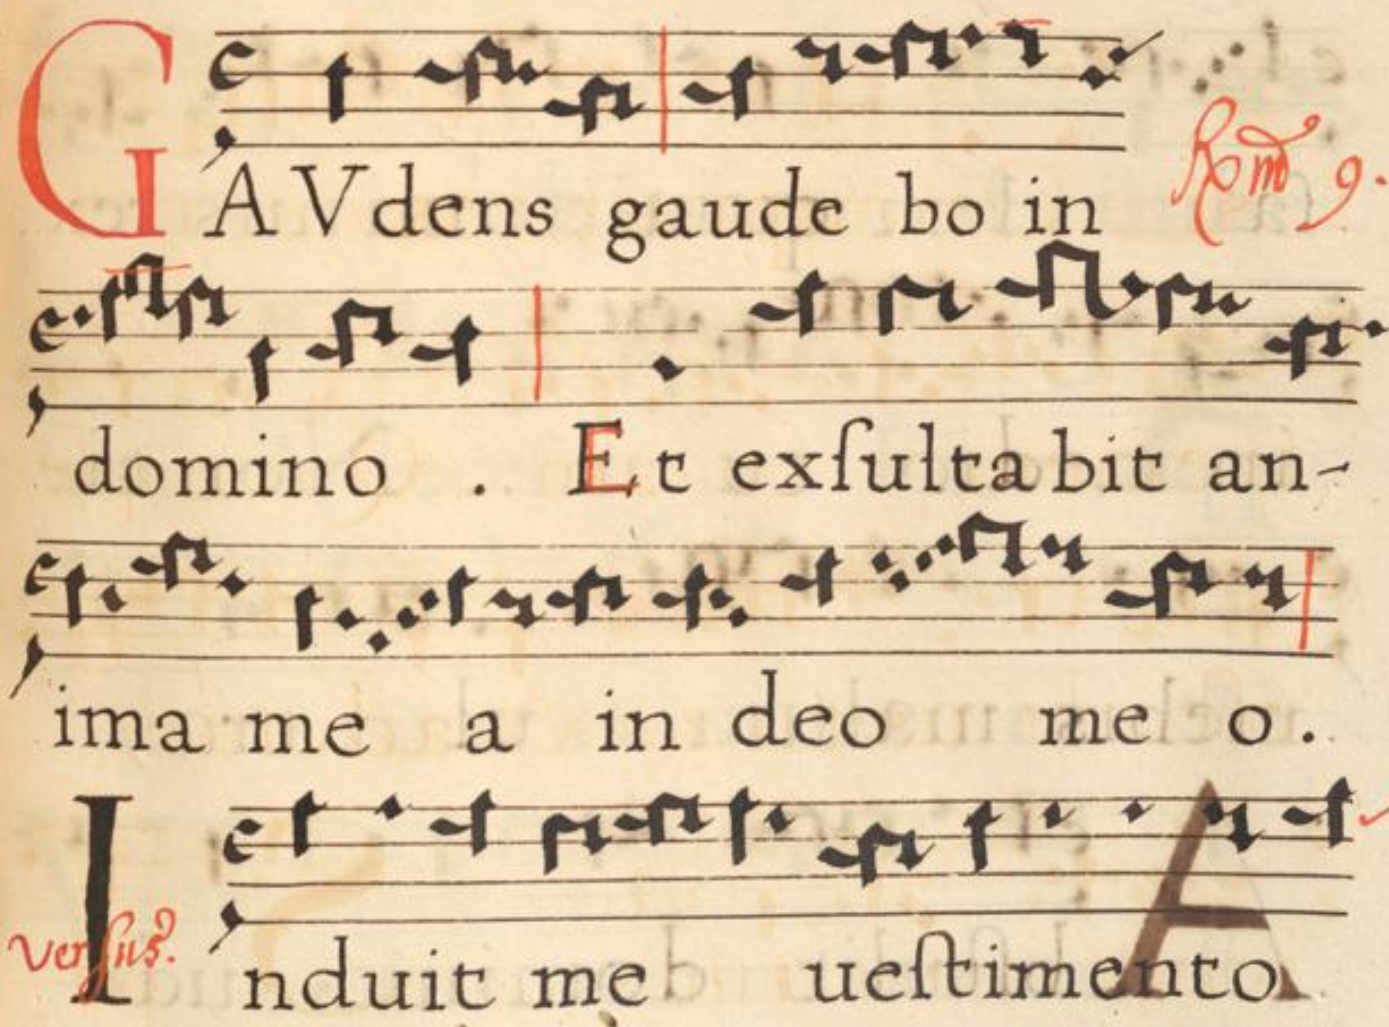 GAVdens gaude bo in
domino . Et exſultabit an-
ima me a in deo me o.
verſus.
Induit me ueſtimento